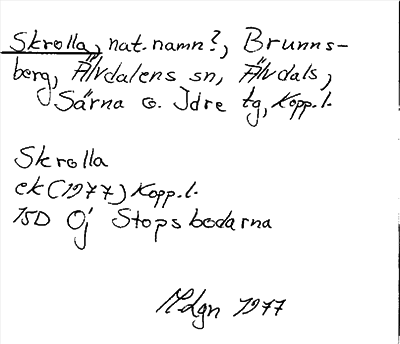 Skrolla, nat.namn?, Brunns-
berg, Älvdalens sn, Älvdals,
Särna o. Idre tg, Kopp.l.
Skrolla
ek (1977) Kopp.l.
15D Öj Stopsbodarna
Mdgn 1977